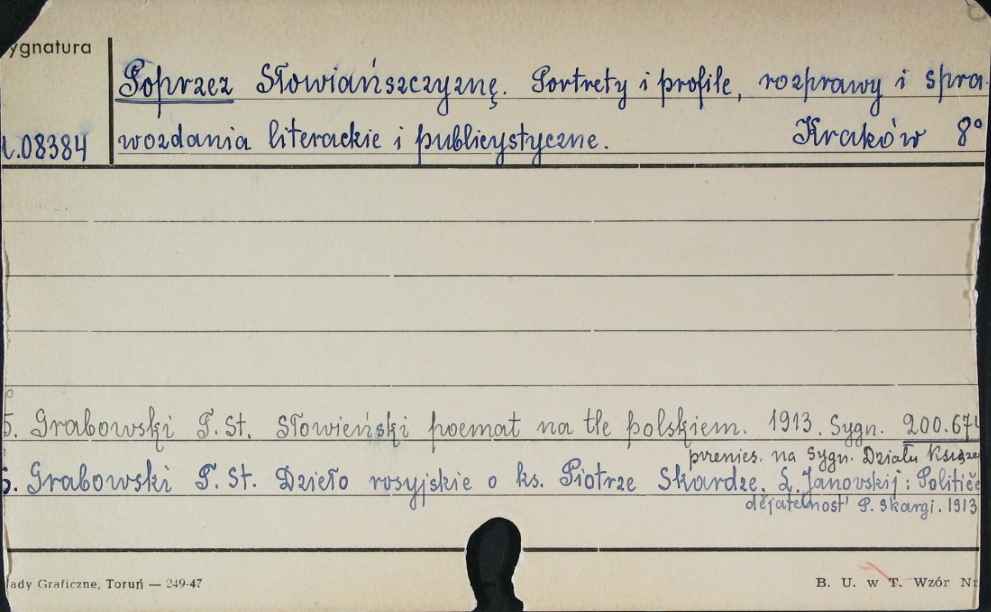 ygnatura
Poprzez Słowiańszczyznę. Portrety i profile, rozprawy i spra-
08384 wozdania literackie i publicystyczne. Kraków 8°
5. Grabowski T. St. Słowieński poemat na tle polskiem. 1913. Sygn. 200.674
przenies. na Sygn. Działu Książe
6. Grabowski T. St. Dzieło rosyjskie o ks. Piotrze Skardze. L. Janovskij: Političe
dejatelnost' P. Skargi. 1913
łady Graficzne, Toruń — 249-47
B. U. w T. Wzór Nr